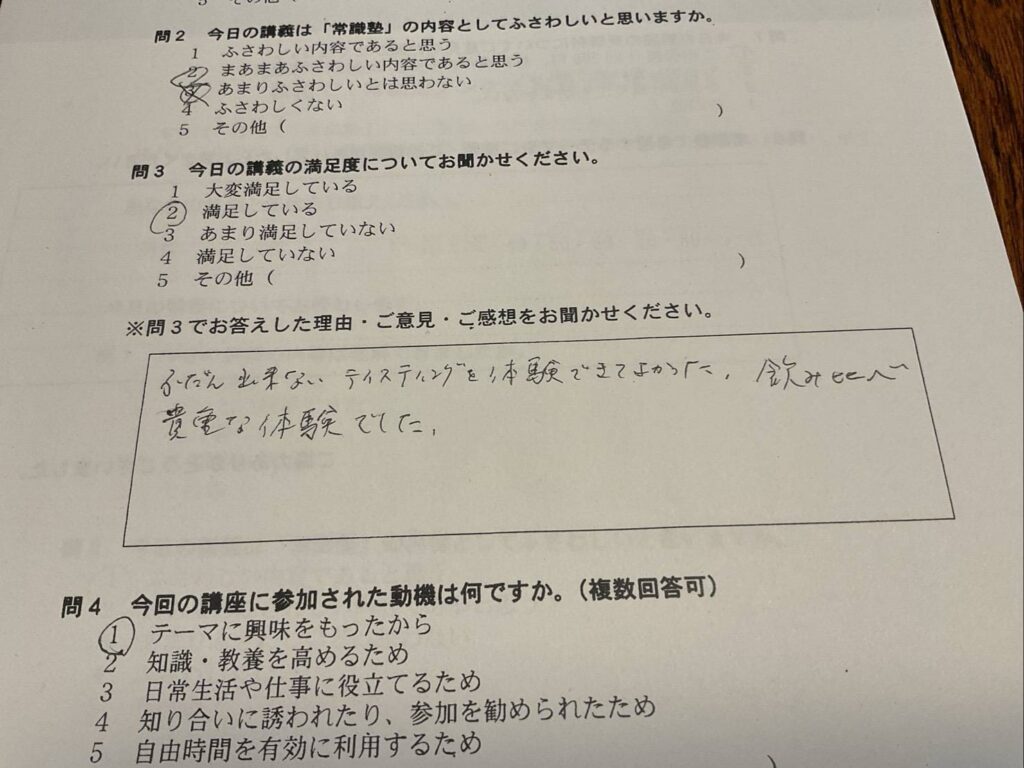 5 その他(
問2 今日の講義は「常識塾」の内容としてふさわしいと思いますか。
1 ふさわしい内容であると思う
2 まあまあふさわしい内容であると思う
3 あまりふさわしいとは思わない
4 ふさわしくない
5 その他( )
問3 今日の講義の満足度についてお聞かせください。
1 大変満足している
2 満足している
3 あまり満足していない
4 満足していない
5 その他( )
※問3でお答えした理由・ご意見・ご感想をお聞かせください。
ふだん出来ないティスティングを体験できてよかった. 飲み比べ
貴重な体験でした.
問4 今回の講座に参加された動機は何ですか。(複数回答可)
1 テーマに興味をもったから
2 知識・教養を高めるため
3 日常生活や仕事に役立てるため
4 知り合いに誘われたり、参加を勧められたため
5 自由時間を有効に利用するため
)